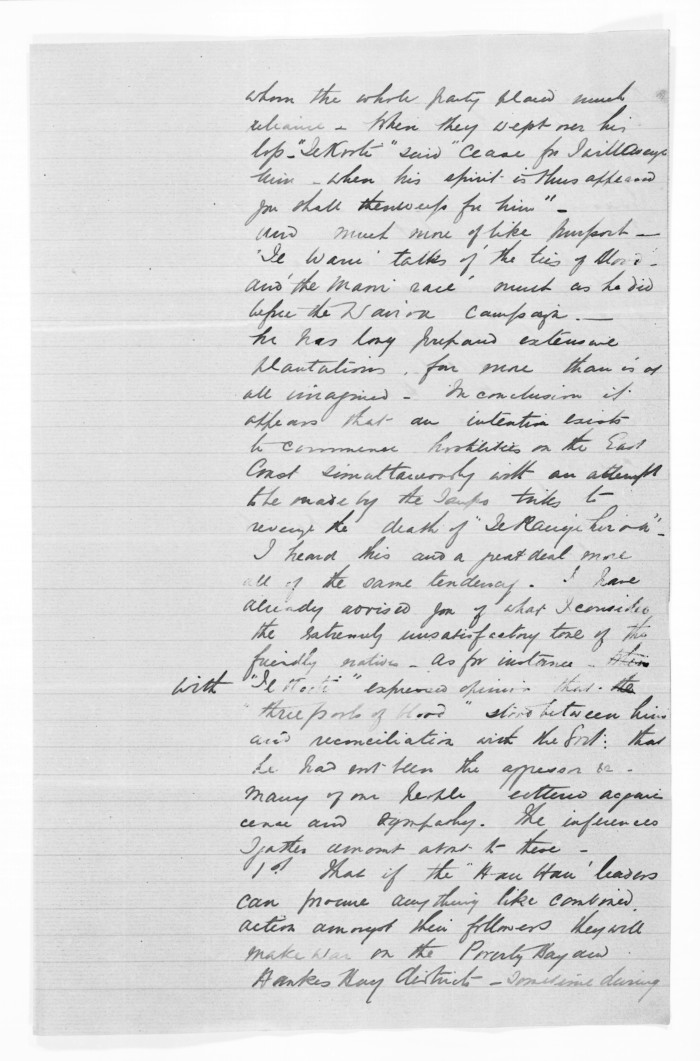 whom the whole party placed much
reliance - When they wept over his
loss - "Te Kooti" said "Cease for I will avenge
him - when his spirit is thus appeased
you shall then weep for him" -
and much more of like purport -
"Te Waru" talks of 'the ties of blood' -
and 'the Maori race' much as he did
before the Wairoa Campaign. -
he has long prepared extensive
plantations, far more than is at
all imagined - In conclusion it
appears that an intention exists
to commence hostilities on the East
Coast simultaneously with an attempt
to be made by the Taupo tribes to
revenge the death of "Te Rangihiroa" -
I heard this and a great deal more
all of the same tendency. I have
already advised you of what I consider
the extremely unsatisfactory tone of the
friendly natives - as for instance -
with "Te Kooti" expressed opinion that - the
"three pools of blood" stood between him
and reconciliation with the Govt: that
he had not been the aggressor &c -
Many of our people uttered acquies
cence and sympathy. The inferences
I gather amount about to these -
1st That if the "Hau Hau" leaders
can procure anything like combined
action amongst their followers they will
make war on the Poverty Bay and
Hawkes Bay districts - sometime during